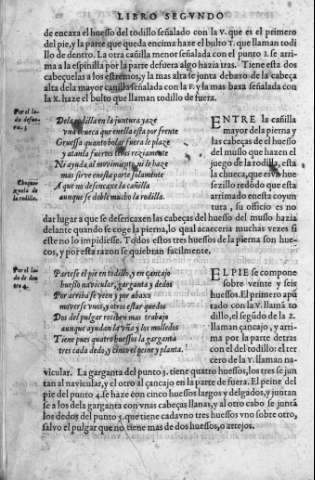 LIBRO SEGVNDO
de encaxa el huesso del todillo señalado con la v. que es el primero
del pie, y la parte que queda encima haze el bulto T. que llaman todi
llo de dentro. La otra cañilla menor señalada con el punto 2. se arri
ma a la espinilla por la parte defuera algo hazia tras. Tiene esta dos
cabeçuelas a los estremos, y la mas alta se junta debaxo de la cabeça
alta dela mayor canilla señalada con la r. y la mas baxa señalada con
la x. haze el bulto que llaman todillo de fuera.
Por el la
do defue-
ra. 3
Chueque
zuela de
la rodilla.
De la rodilla en la juntura yaze
vna chueca que enella esta por frente
Gruessa quanto bolas fuera le plaze
y atanla fuertes reziamente
Ni ayuda al mouimiento ni le haze
mas sirue enesta parte solamente
A que no desencaxe la cañilla
aunque se doble mucho la rodilla.
ENTRE la cañilla
mayor dela pierna y
las cabeças de el huesso
del muslo que hazen el
juego de la rodilla, està
la chueca, que es vn hue
sezillo redōdo que esta
arrimado enesta coyun
tura, su officio es no
dar lugar a que se desencaxen las cabeças del huesso del muslo hazia
delante quando se coge la pierna, lo qual acaeceria muchas vezes si
este no lo impidiesse. Todos estos tres huessos de la pierna son hue-
cos, y por esta razon se quiebran facilmente.
Por el la
do de den
tro 4.
Partese el pie en todillo, y en çancajo
huesso nauicular, garganta y dedos
Por arriba se veen y por abaxo
mouerse vnos, y otros estar quedos
Dos del pulgar reciben mas trabajo
aunque ayudan la vña y los molledos
Tiene pues quatro huessos la garganta
tres cada dedo, y cinco el peine y planta.
EL PIE se compone
sobre veinte y seis
huessos. El primero apū
tado con la v. llamā to
dillo, el segūdo de la z.
llaman çancajo, y arri-
ma por la parte detras
con el del todillo: el ter
cero de la Y. llaman na-
uicular. La garganta del punto 3. tiene quatro huessos, los tres se jun
tan al nauicular, y el otro al çancajo en la parte de fuera. El peine del
pie del punto 4. se haze con cinco huessos largos y delgados, y juntan
se a los dela garganta con vnas cabeças llanas, y al otro cabo se juntā
los dedos del punto 5. que tiene cada vno tres huessos vno sobre otro,
saluo el pulgar que no tiene mas de dos huessos, o artejos.